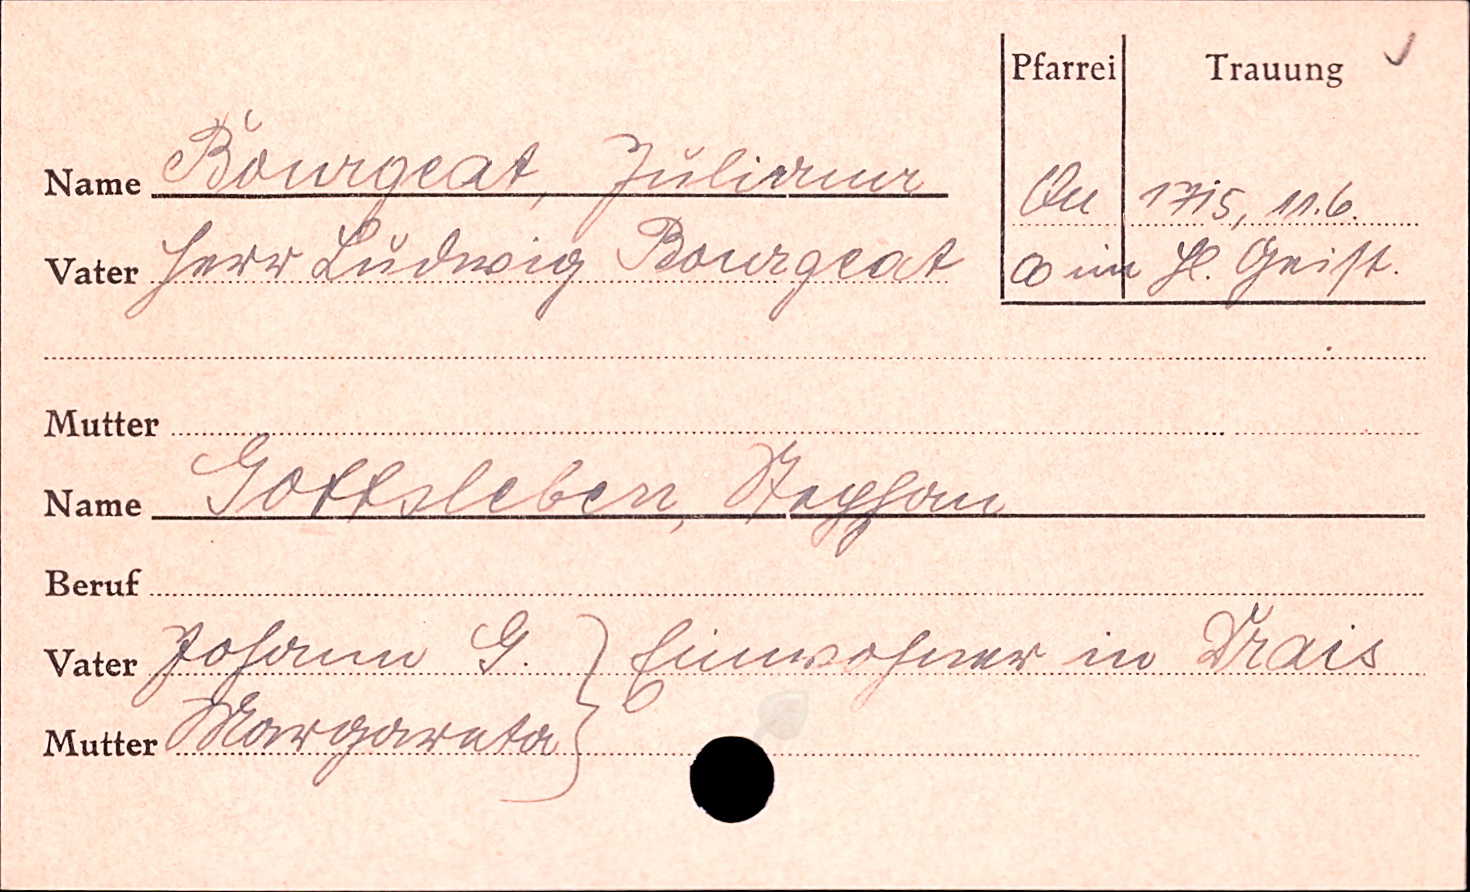 Pfarrei Trauung
Name Bourgeat, Juliana
Qu 1715, 11.6.
Vater Herr Ludwig Bourgeat
∞ im Hl. Geist.
Mutter
Name Gottsleben, Stephan
Beruf
Vater Johann G. } Einwohner in Drais
Mutter Margareta